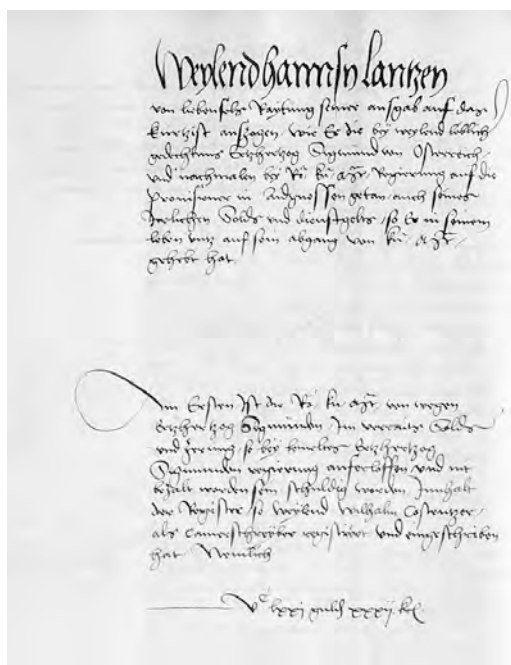 Weylend hannsn lantzen
von liebenfelds Raytung seiner ausgab auf daz
kurtzist auszogen, wie Er die by weylend loblich
gedechtnus Ertzhertzog Sigmund von Osterreich
und nachmalen by Rö. kü. Mt. Regierung auf die
provisioner in Aidgnossen getan, auch seines
Jarlichen Solds und dienstgelts, so Er in seinem
leben untz auf sein abgang von kü. Mt.
gehebt hat
Am Ersten Ist die Rö. kü. Mt. von wegen
Ertzhertzog Sigmunden Im verraits Solds
und Zerung, so bey bemeltes Ertzhertzog
Sigmunden regierung aufgeloffen und nit
bezalt worden sein schuldig worden Innhalt
der Register so weylend Wilhalm Costentzer
als Camerschreyber registriert und eingeschriben
hat. Nemlich
Vᶜ lxxj guldn xxxij kr.